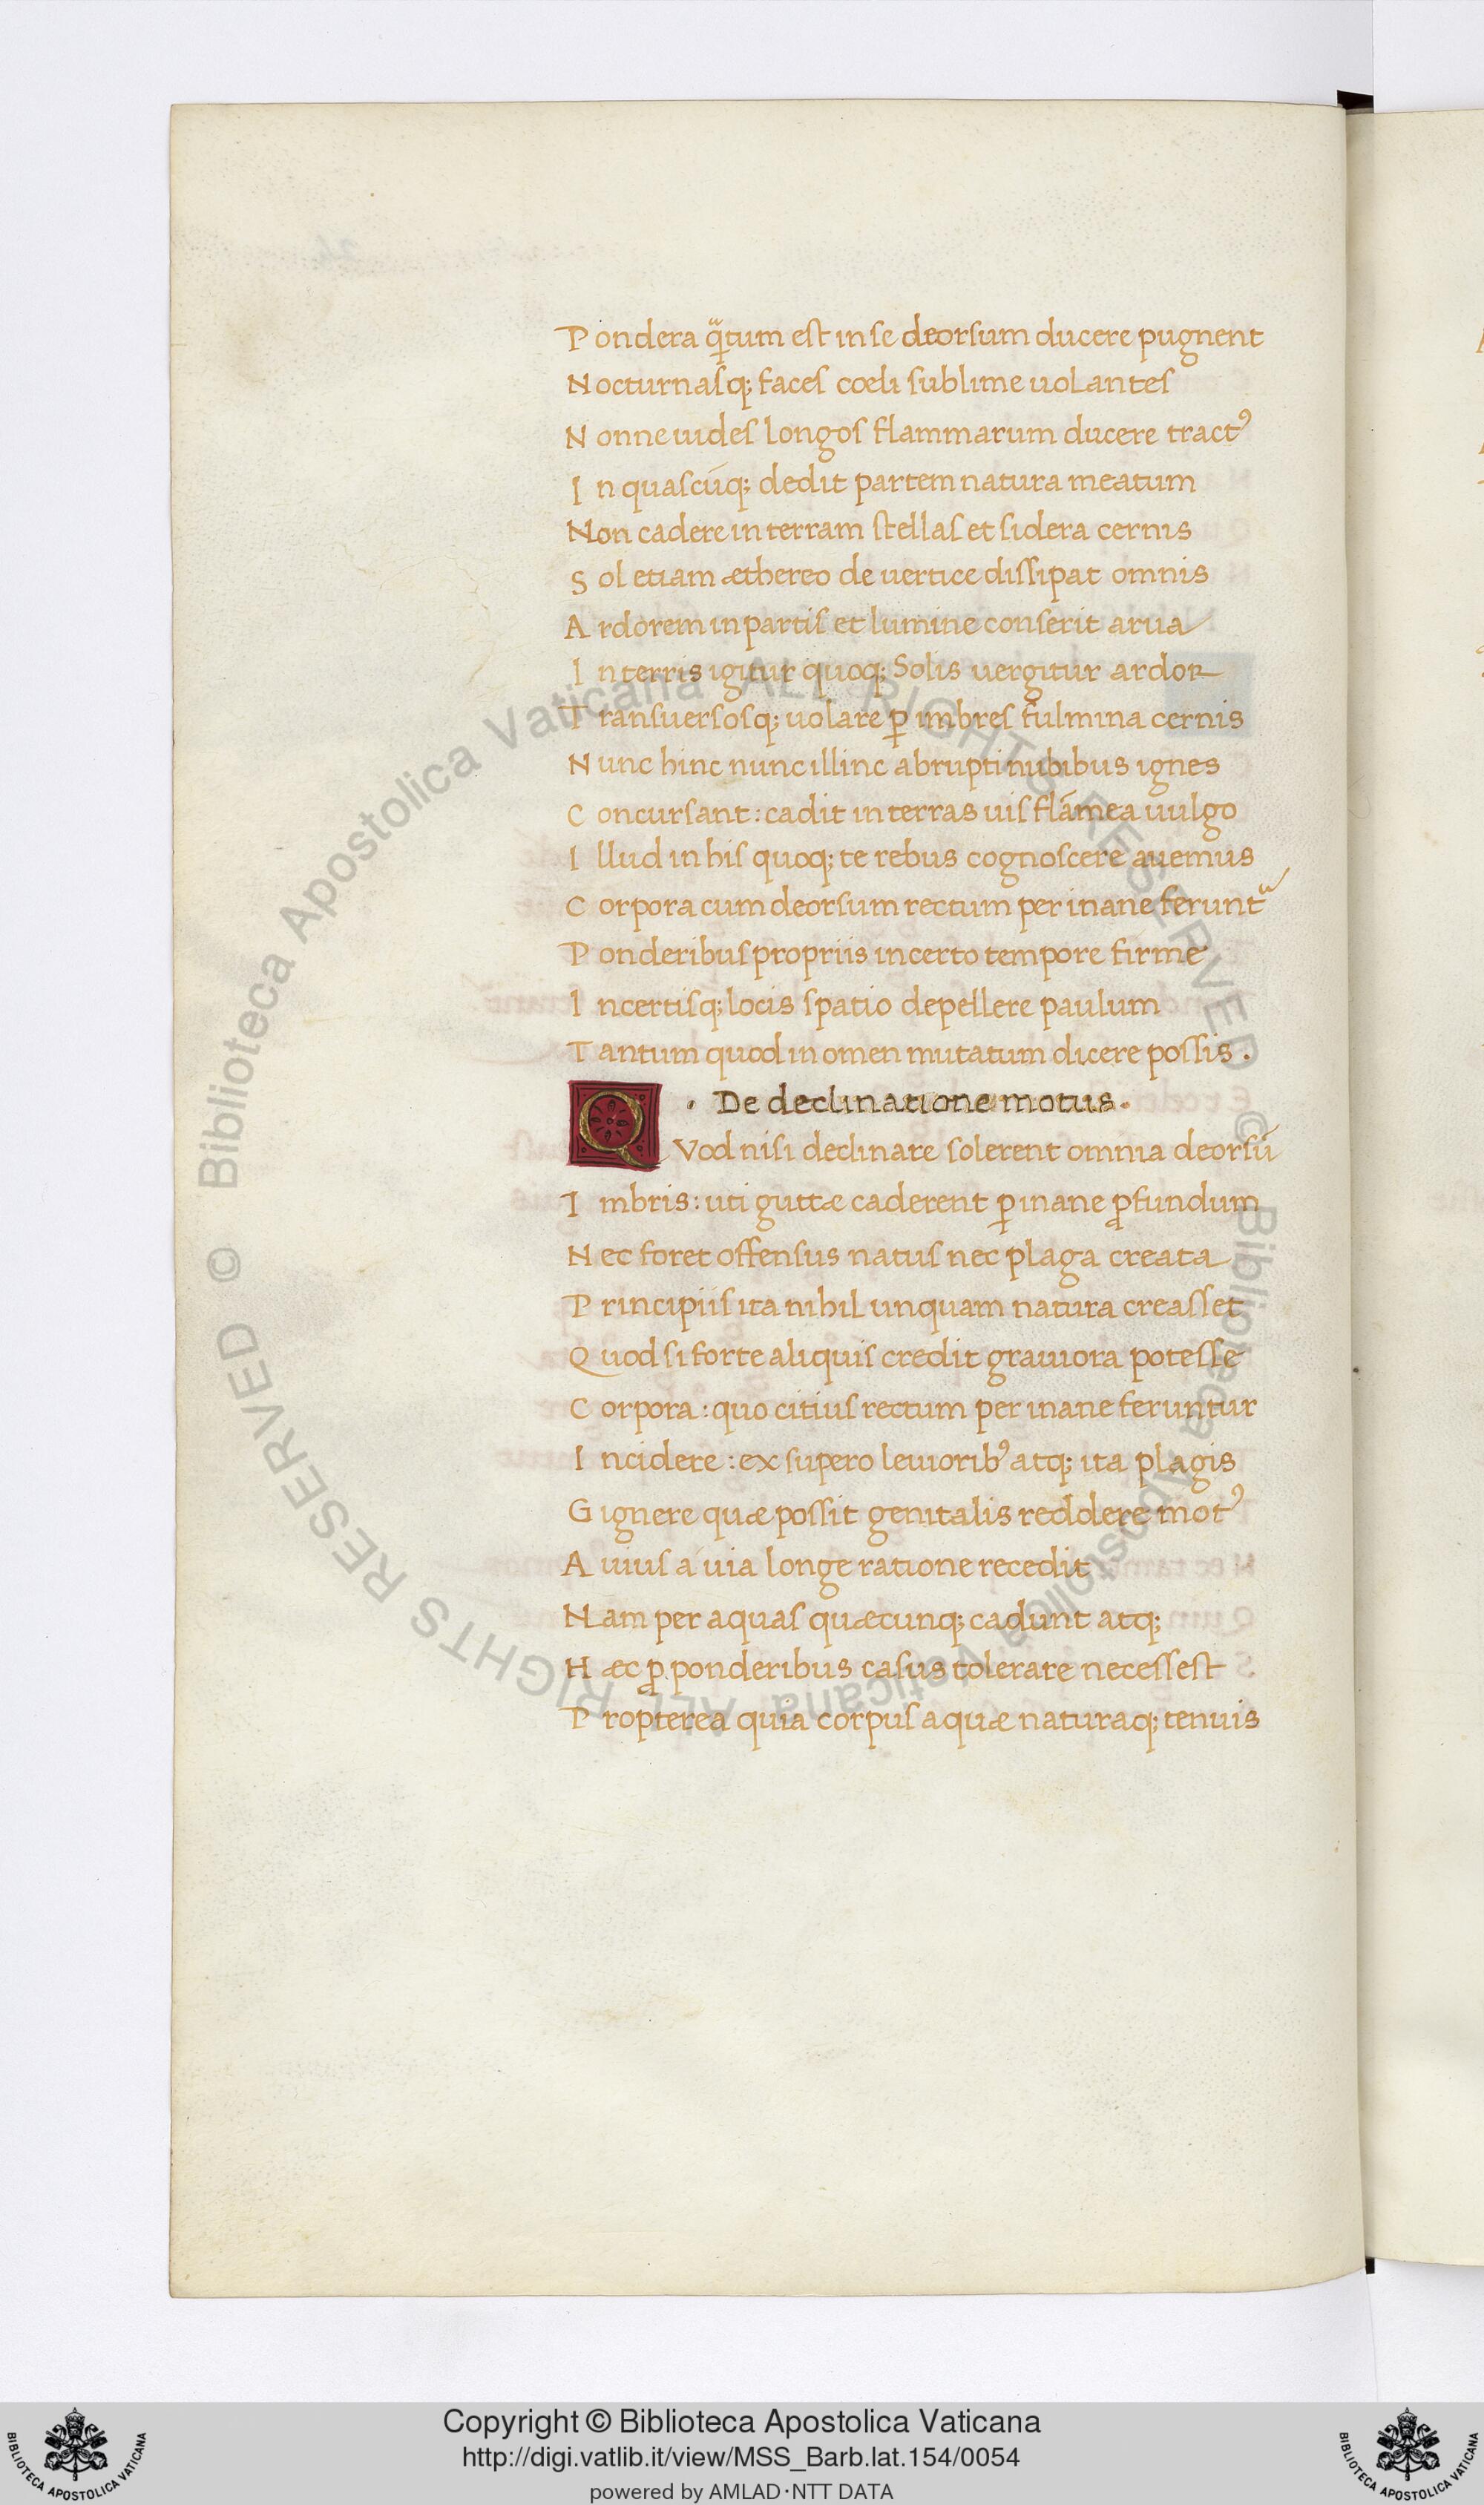 Pondera qᷓtum est in se deorsum ducere pugnent
Nocturnasq; faces cœli sublime uolantes
Nonne uides longos flammarum ducere tractꝰ
In quascūq; dedit partem natura meatum
Non cadere in terram stellas et sidera cernis
Sol etiam æthereo de uertice dissipat omnis
Ardorem in partis et lumine conserit arua
In terris igitur quoq; Solis uergitur ardor
Transuersosq; uolare ꝑ imbres fulmina cernis
Nunc hinc nunc illinc abrupti nubibus ignes
Concursant: cadit in terras uis flāmea uulgo
Illud in his quoq; te rebus cognoscere auemus
Corpora cum deorsum rectum per inane feruntᷓ
Ponderibus propriis incerto tempore firme
Incertisq; locis spatio depellere paulum
Tantum quod in omen mutatum dicere possis.
· De declinatione motus.
QVod nisi declinare solerent omnia deorsū
Imbris: uti guttæ caderent ꝑ inane ꝓfundum
Nec foret offensus natus nec plaga creata
Principiis ita nihil unquam natura creasset
Quod si forte aliquis credit grauiora potesse
Corpora: quo citius rectum per inane feruntur
Incidere: ex supero leuioribꝰ atq; ita plagis
Gignere quæ possit genitalis reddere motꝰ
Auius a uia longe ratione recedit
Nam per aquas quæcunq; cadunt atq;
Hæc ꝓ ponderibus casus tolerare necessest
Propterea quia corpus aquæ naturaq; tenuis
© Biblioteca Apostolica Vaticana ALL RIGHTS RESERVED © Biblioteca Apostolica Vaticana ALL RIGHTS RESERVED
BIBLIOTECA APOSTOLICA VATICANA
Copyright © Biblioteca Apostolica Vaticana
http://digi.vatlib.it/view/MSS_Barb.lat.154/0054
powered by AMLAD·NTT DATA
BIBLIOTECA APOSTOLICA VATICANA